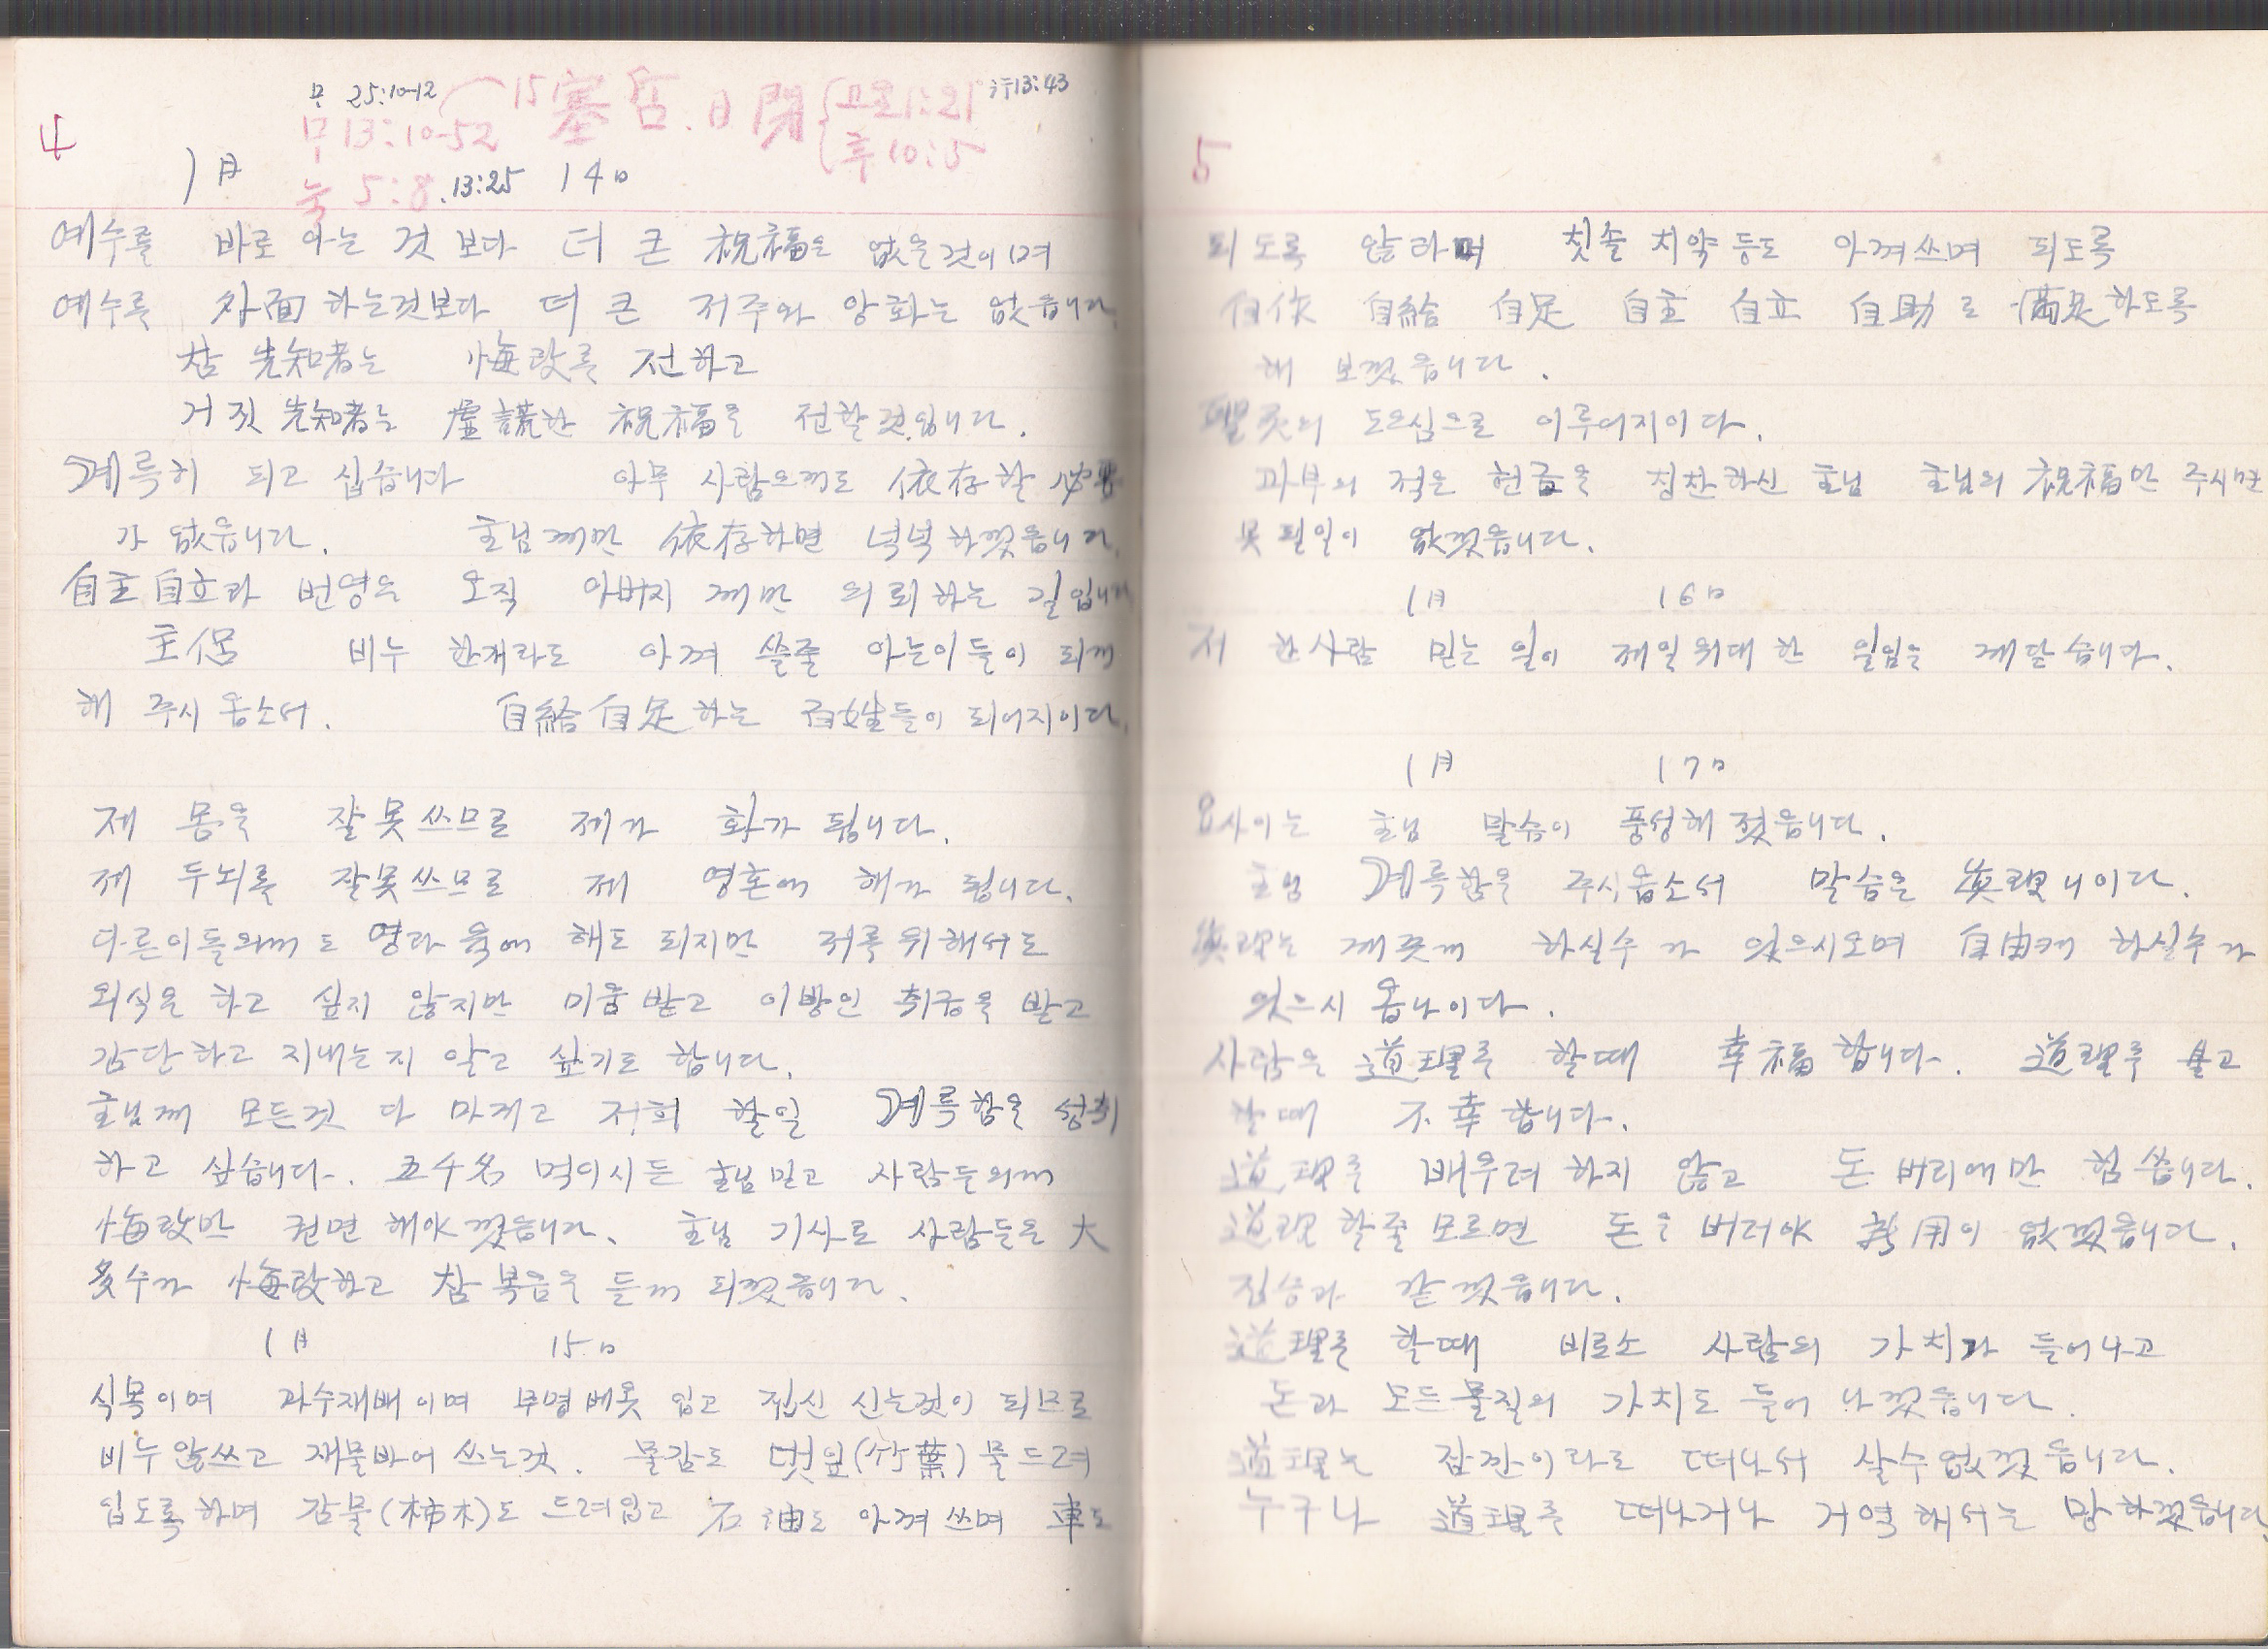 4
마 25:10-12
15
마 13:10-52
눅 5:8. 13:25
고전 1:21
행 13:43
1月 14日
예수를 바로 아는 것 보다 더 큰 祝福은 없을것이며
예수를 外面하는것보다 더 큰 저주와 앙화는 없읍니다
참 先知者는 悔改를 전하고
거짓 先知者는 虛謊한 祝福을 전할것입니다.
계륵히 되고 십습니다 아무 사람으께도 依存할 必要
가 없읍니다. 主님께만 依存하면 넉넉하겠읍니다.
自主自立과 번영은 오직 아버지께만 의뢰하는 길입니다
主侶 비누 한개라도 아껴 쓸줄 아는이들이 되게
해 주시옵소서. 自給自足하는 百姓들이 되어지이다.
제 몸을 잘못쓰므로 제가 화가 됩니다.
제 두뇌를 잘못쓰므로 제 영혼에 해가 됩니다.
다른이들의께도 영과 육에 해도 되지만 저를 위해서도
외식은 하고 싶지 않지만 미움받고 이방인 취급을 받고
감단하고 지내는지 알고 싶기도 합니다.
主님께 모든것 다 마기고 저희 할일 계륵함을 성취
하고 싶습니다. 五千名 먹이시든 主님믿고 사람들의께
悔改만 권면해야겠읍니다. 主님 기사로 사람들은 大
多수가 悔改하고 참 복음을 듣게 되겠읍니다.
1月 15日
식목이며 과수재배이며 무명베옷 입고 짚신 신는것이 되므로
비누않쓰고 재물바어 쓰는것. 물감도 댓잎(竹葉)물드려
입도록하며 감물(柿木)도 드려입고 石油도 아껴쓰며 車도
5
되도록 않라며 칫솔 치약등도 아껴쓰며 되도록
自作 自給 自足 自主 自立 自助로 滿足하도록
해 보겠읍니다.
聖灵의 도으심으로 이루어지이다.
과부의 적은 헌금을 칭찬하신 主님 主님의 祝福만 주시면
못될일이 없겠읍니다.
1月 16日
저 한사람 믿는 일이 제일 위대한 일임을 깨닫습니다.
1月 17日
요사이는 主님 말슴이 풍성해졌읍니다.
主님 계륵함을 주시옵소서 말슴은 眞理니이다.
眞理는 깨끗게 하실수가 있으시오며 自由케 하실수가
있으시옵나이다.
사람은 道理를 할때 幸福합니다. 道理를 않고
할때 不幸합니다.
道理를 배우려하지 않고 돈 버리에만 힘씁니다.
道理 할줄모르면 돈을 버러야 所用이 없겠읍니다.
짐승과 같겠읍니다.
道理를 할때 비로소 사람의 가치가 들어나고
돈과 모든물질의 가치도 들어 나겠읍니다.
道理는 잠깐이라도 떠나서 살수없겠읍니다.
누구나 道理를 떠나거나 거역해서는 망하겠읍니다